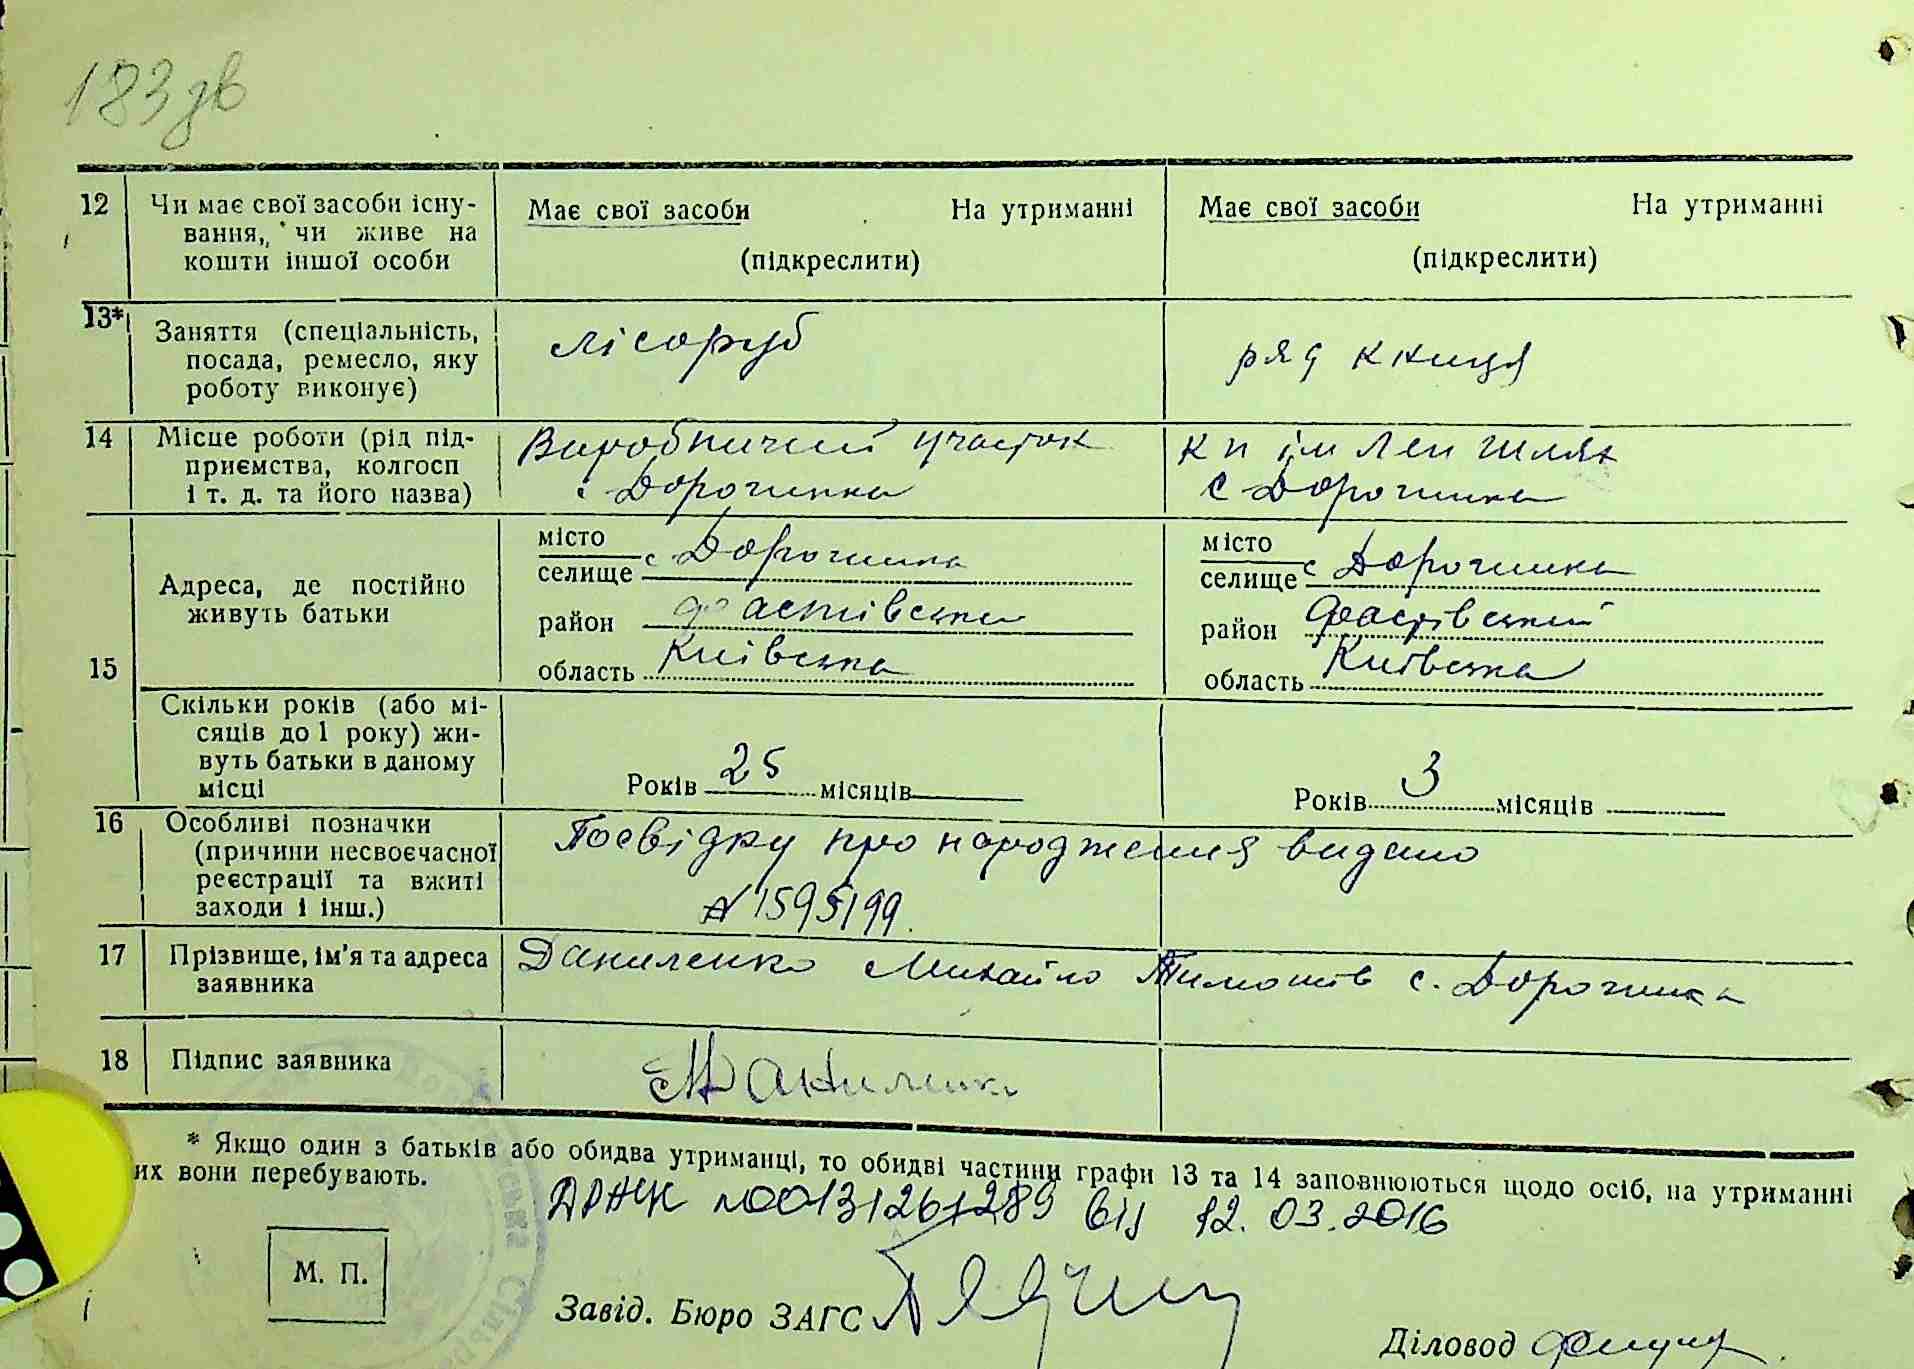 183 дв
12 Чи має свої засоби існу- Має свої засоби На утриманні Має свої засоби На утриманні
вання, чи живе на
кошти іншої особи (підкреслити) (підкреслити)
13* Заняття (спеціальність, лісоруб ряд книця
посада, ремесло, яку
роботу виконує)
14 Місце роботи (рід під- Виробничий участок кп ім Лен шлях
приємства, колгосп с Дорогинка с Дорогинка
і т. д. та його назва)
15 Адреса, де постійно живуть батьки
місто
селище с Дорогинка
район Фастівський
область Київська
місто
селище с Дорогинка
район Фастівський
область Київська
Скільки років (або мі-
сяців до 1 року) жи-
вуть батьки в даному
місці Років 25 місяців Років 3 місяців
16 Особливі позначки Посвідку про народження видано
(причини несвоєчасної
реєстрації та вжиті N 1595199
заходи і інш.)
17 Прізвище, ім'я та адреса Даниленко Михайло Тимошів с. Дорогинка
заявника
18 Підпис заявника М Даниленко
* Якщо один з батьків або обидва утриманці, то обидві частини графи 13 та 14 заповнюються щодо осіб, на утриманні
их вони перебувають.
N00131261289 від 12.03.2016
М. П.
Завід. Бюро ЗАГС
Діловод